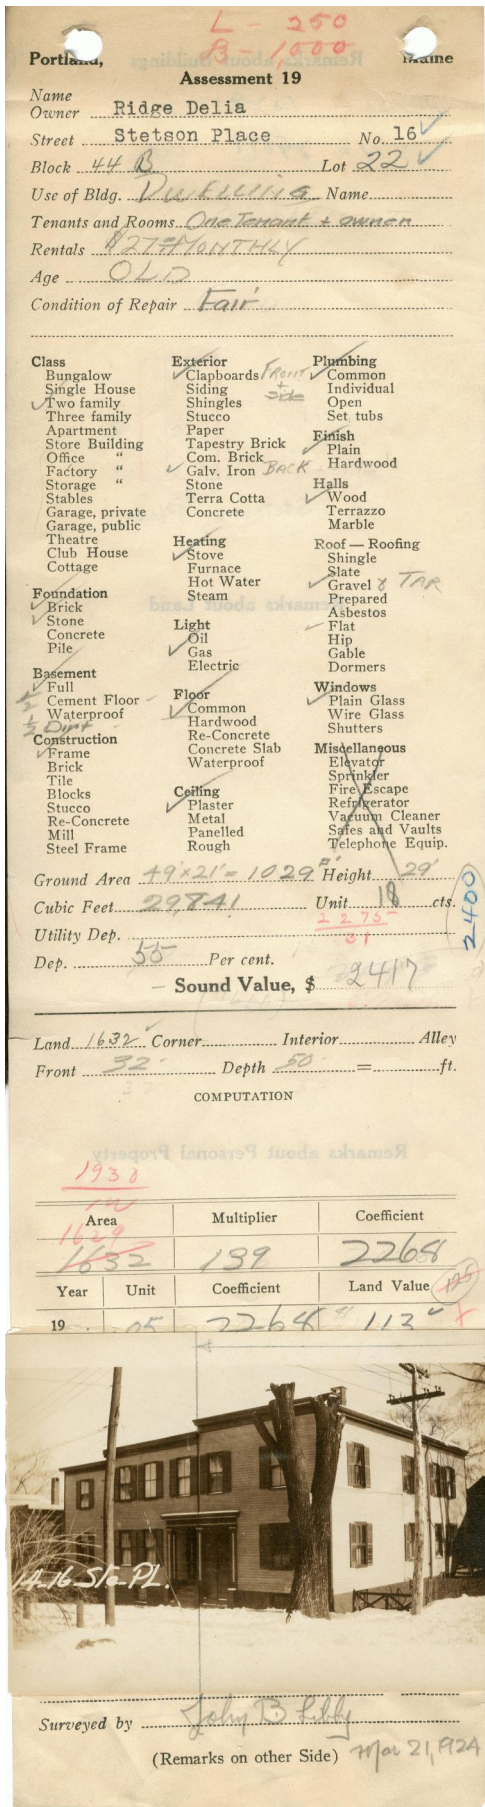 L - 250
B - 1,000
Portland, Maine
Assessment 19
Name
Owner Ridge Delia
Street Stetson Place No. 16
Block 44 B Lot 22
Use of Bldg. DWELLING Name
Tenants and Rooms One Tenant + owner
Rentals $27 MONTHLY
Age OLD
Condition of Repair Fair
Class
Bungalow
Single House
Two family
Three family
Apartment
Store Building
Office "
Factory "
Storage "
Stables
Garage, private
Garage, public
Theatre
Club House
Cottage
Foundation
Brick
Stone
Concrete
Pile
Basement
Full
1/2 Cement Floor
Waterproof
1/2 Dirt
Construction
Frame
Brick
Tile
Blocks
Stucco
Re-Concrete
Mill
Steel Frame
Exterior
Clapboards FRONT + Side
Siding
Shingles
Stucco
Paper
Tapestry Brick
Com. Brick
Galv. Iron BACK
Stone
Terra Cotta
Concrete
Heating
Stove
Furnace
Hot Water
Steam
Light
Oil
Gas
Electric
Floor
Common
Hardwood
Re-Concrete
Concrete Slab
Waterproof
Ceiling
Plaster
Metal
Panelled
Rough
Plumbing
Common
Individual
Open
Set tubs
Finish
Plain
Hardwood
Halls
Wood
Terrazzo
Marble
Roof — Roofing
Shingle
Slate
Gravel & TAR
Prepared
Asbestos
Flat
Hip
Gable
Dormers
Windows
Plain Glass
Wire Glass
Shutters
Miscellaneous
Elevator
Sprinkler
Fire Escape
Refrigerator
Vacuum Cleaner
Safes and Vaults
Telephone Equip.
Ground Area 49' x 21' = 1029 Height 29'
Cubic Feet 29,841 Unit 18 cts.
2400
2275
31
Utility Dep.
Dep. 55 Per cent.
Sound Value, $ 2417
Land 1632 Corner Interior Alley
Front 32 Depth 50 = ft.
COMPUTATION
1930
Area Multiplier Coefficient
1629
1632 139 2268
Year Unit Coefficient Land Value 125
19 05 2268 113
14-16 Sto-PL.
Surveyed by John B Libby
(Remarks on other Side) Mar 21, 1924